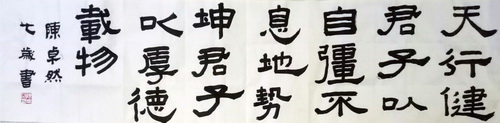 天行健
君子以
自彊不
息地勢
坤君子
以厚德
載物
陳卓然
七歲書